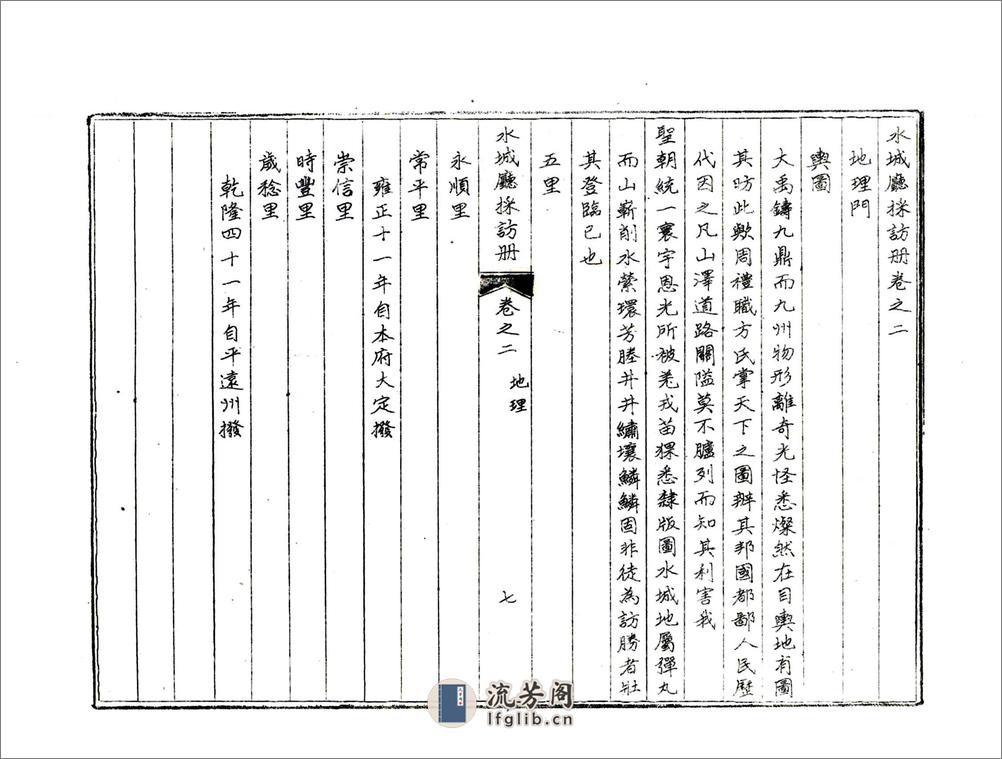 水城廳採訪册卷之二
地理門
輿圖
大禹鑄九鼎而九州物形離奇光怪悉燦然在目輿地有圖
其昉此歟周禮職方氏掌天下之圖辨其邦國都鄙人民歷
代因之凡山澤道路關隘莫不臚列而知其利害我
聖朝統一寰宇恩光所被羌戎苗猓悉隸版圖水城地屬彈丸
而山嶄削水縈環芳塍井井繡壤鱗鱗固非徒為訪勝者壯
其登臨已也
五里
水城廳採訪册
卷之二 地理
七
永順里
常平里
雍正十一年自本府大定撥
崇信里
時豐里
歲稔里
乾隆四十一年自平遠州撥
流芳阁
lfglib.cn